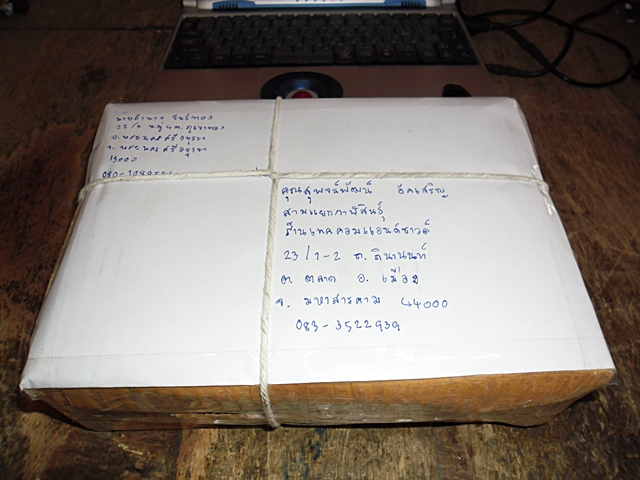 22/2 หมู่ 4 ต.ภูเขาทอง
อ.พระนครศรีอยุธยา
จ.พระนครศรีอยุธยา
13000
คุณสุพจน์พัฒน์ อัคเสริญ
สามแยกกาฬสินธุ์
ร้านเทคคอมแอนด์ซาวด์
23/1-2 ถ.ถีนานนท์
ต. ตลาด อ. เมือง
จ. มหาสารคาม 44000
083-3522939